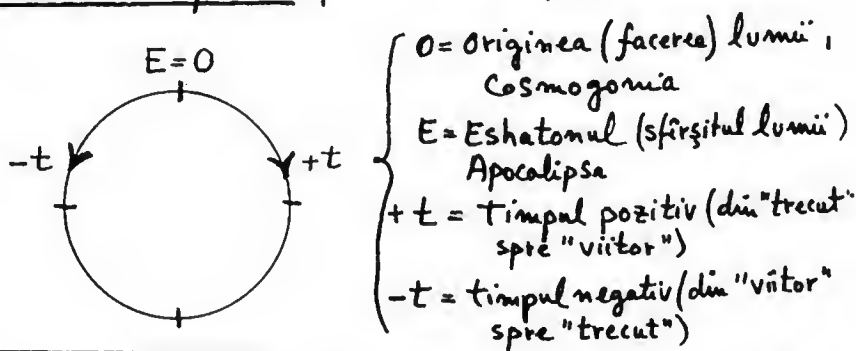 E=O
-t
+t
O= Originea (facerea) lumii,
Cosmogonia
E= Eshatonul (sfîrşitul lumii)
Apocalipsa
+t = Timpul pozitiv (din "trecut"
spre "viitor")
-t = timpul negativ (din "viitor"
spre "trecut")